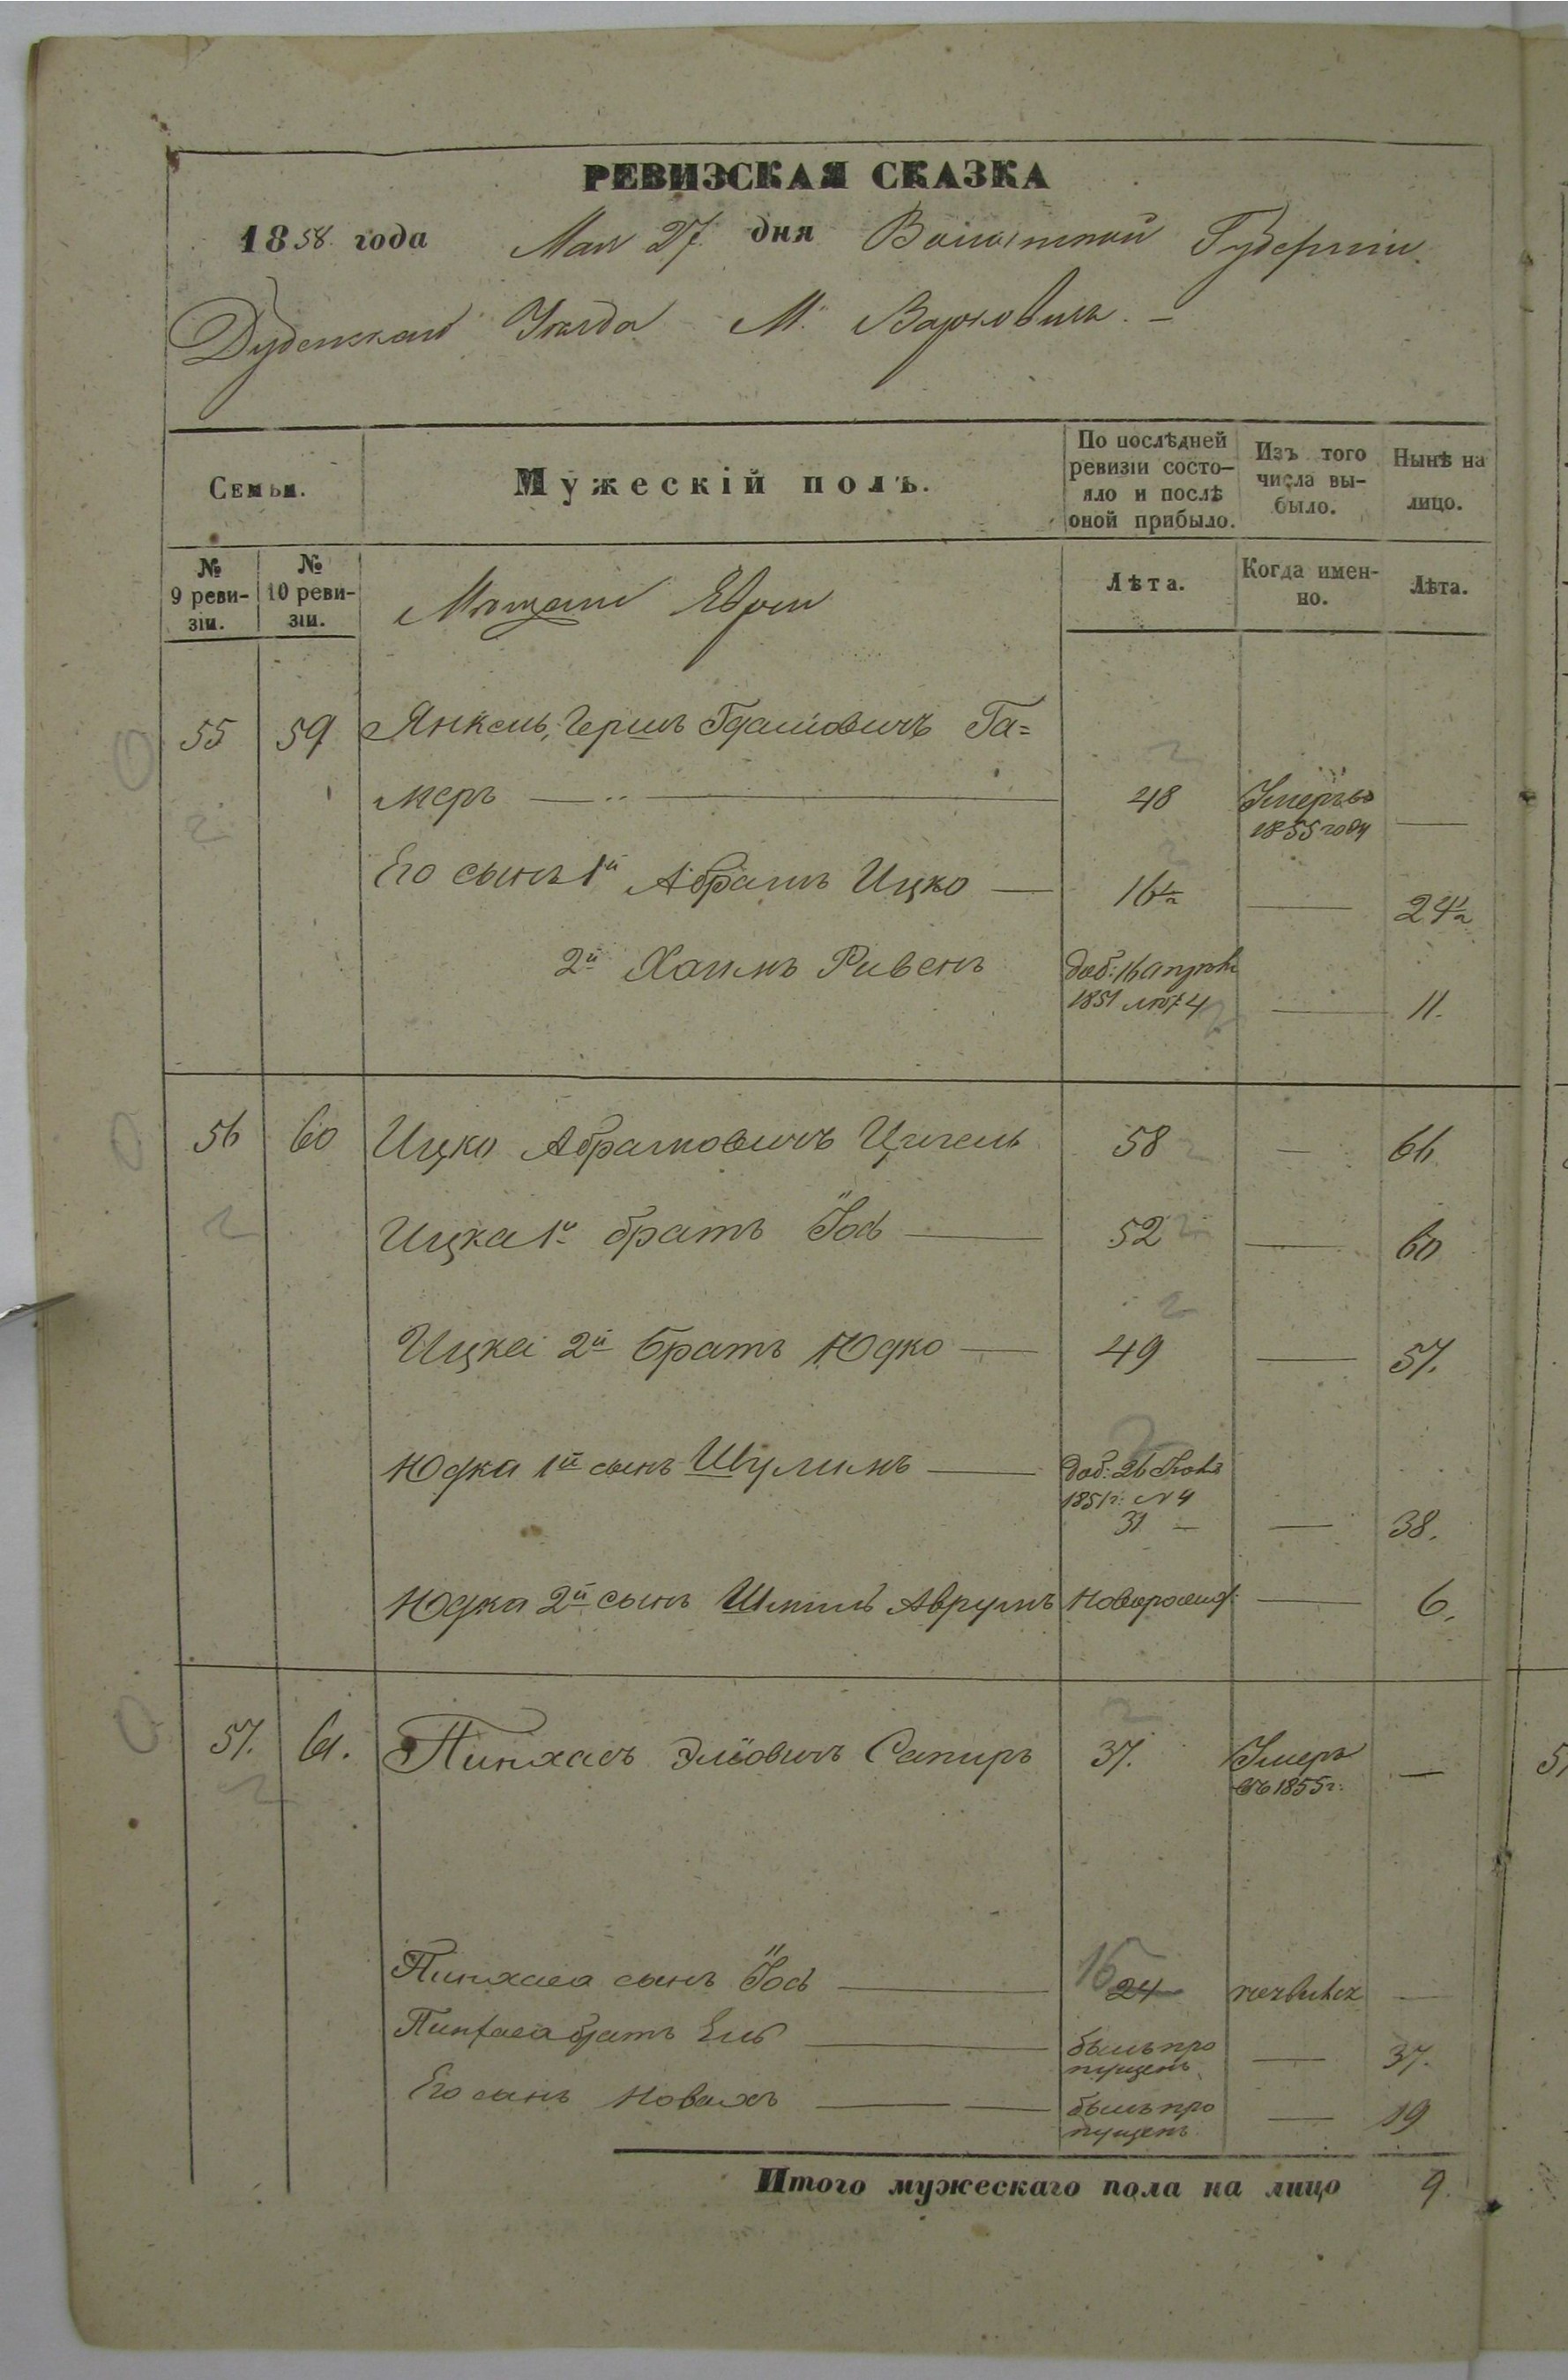 РЕВИЗСКАЯ СКАЗКА
1858 года Мая 27 дня Волынской Губерніи.
Дубенскаго Уѣзда М. Варковичь. –
Семьи.
Мужескій полъ.
По послѣдней
ревизіи состо-
яло и послѣ
оной прибыло.
Изъ того
числа вы-
было.
Нынѣ на
лицо.
№
9 реви-
зіи.
№
10 реви-
зіи.
Мѣщане Евреи
Лѣта.
Когда имен-
но.
Лѣта.
55 59 Янкель, Гершъ Гдаліовичъ Га=
меръ 48 Умеръ въ
1855 году
Его сынъ 1й Абрамъ Ицко 16½ 24½
2й Хаимъ Рувенъ доб: 16
1851 4 11.
56 60 Ицко Абрамовичъ Цигель 58 66
Ицка 1й братъ Іось 52 60
Ицка 2й братъ Юдко 49 57.
Юдка 1й сынъ Шулимъ доб: 26
1851г: № 4
31 – 38.
Юдка 2й сынъ Аврумъ Новорожд: 6.
57. 61. Пинхасъ Эліовичъ Сапиръ 37. Умеръ
въ 1855г:
Пинхаса сынъ Іось 16 24
Пинхаса братъ Ель былъ про
пущенъ 37.
Его сынъ Новахъ былъ про
пущенъ 19
Итого мужескаго пола на лицо 9.